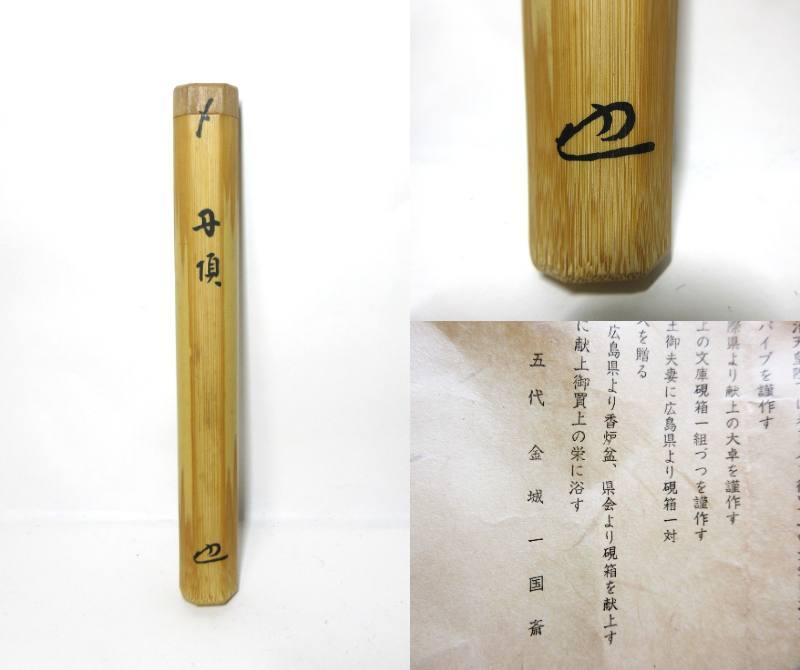 〆
丹頂
也
也
パイプを謹作す
県より献上の大卓を謹作す
上の文庫硯箱一組づつを謹作す
御夫妻に広島県より硯箱一対
を贈る
広島県より香炉盆、県会より硯箱を献上す
に献上御買上の栄に浴す
五代 金城一国斎